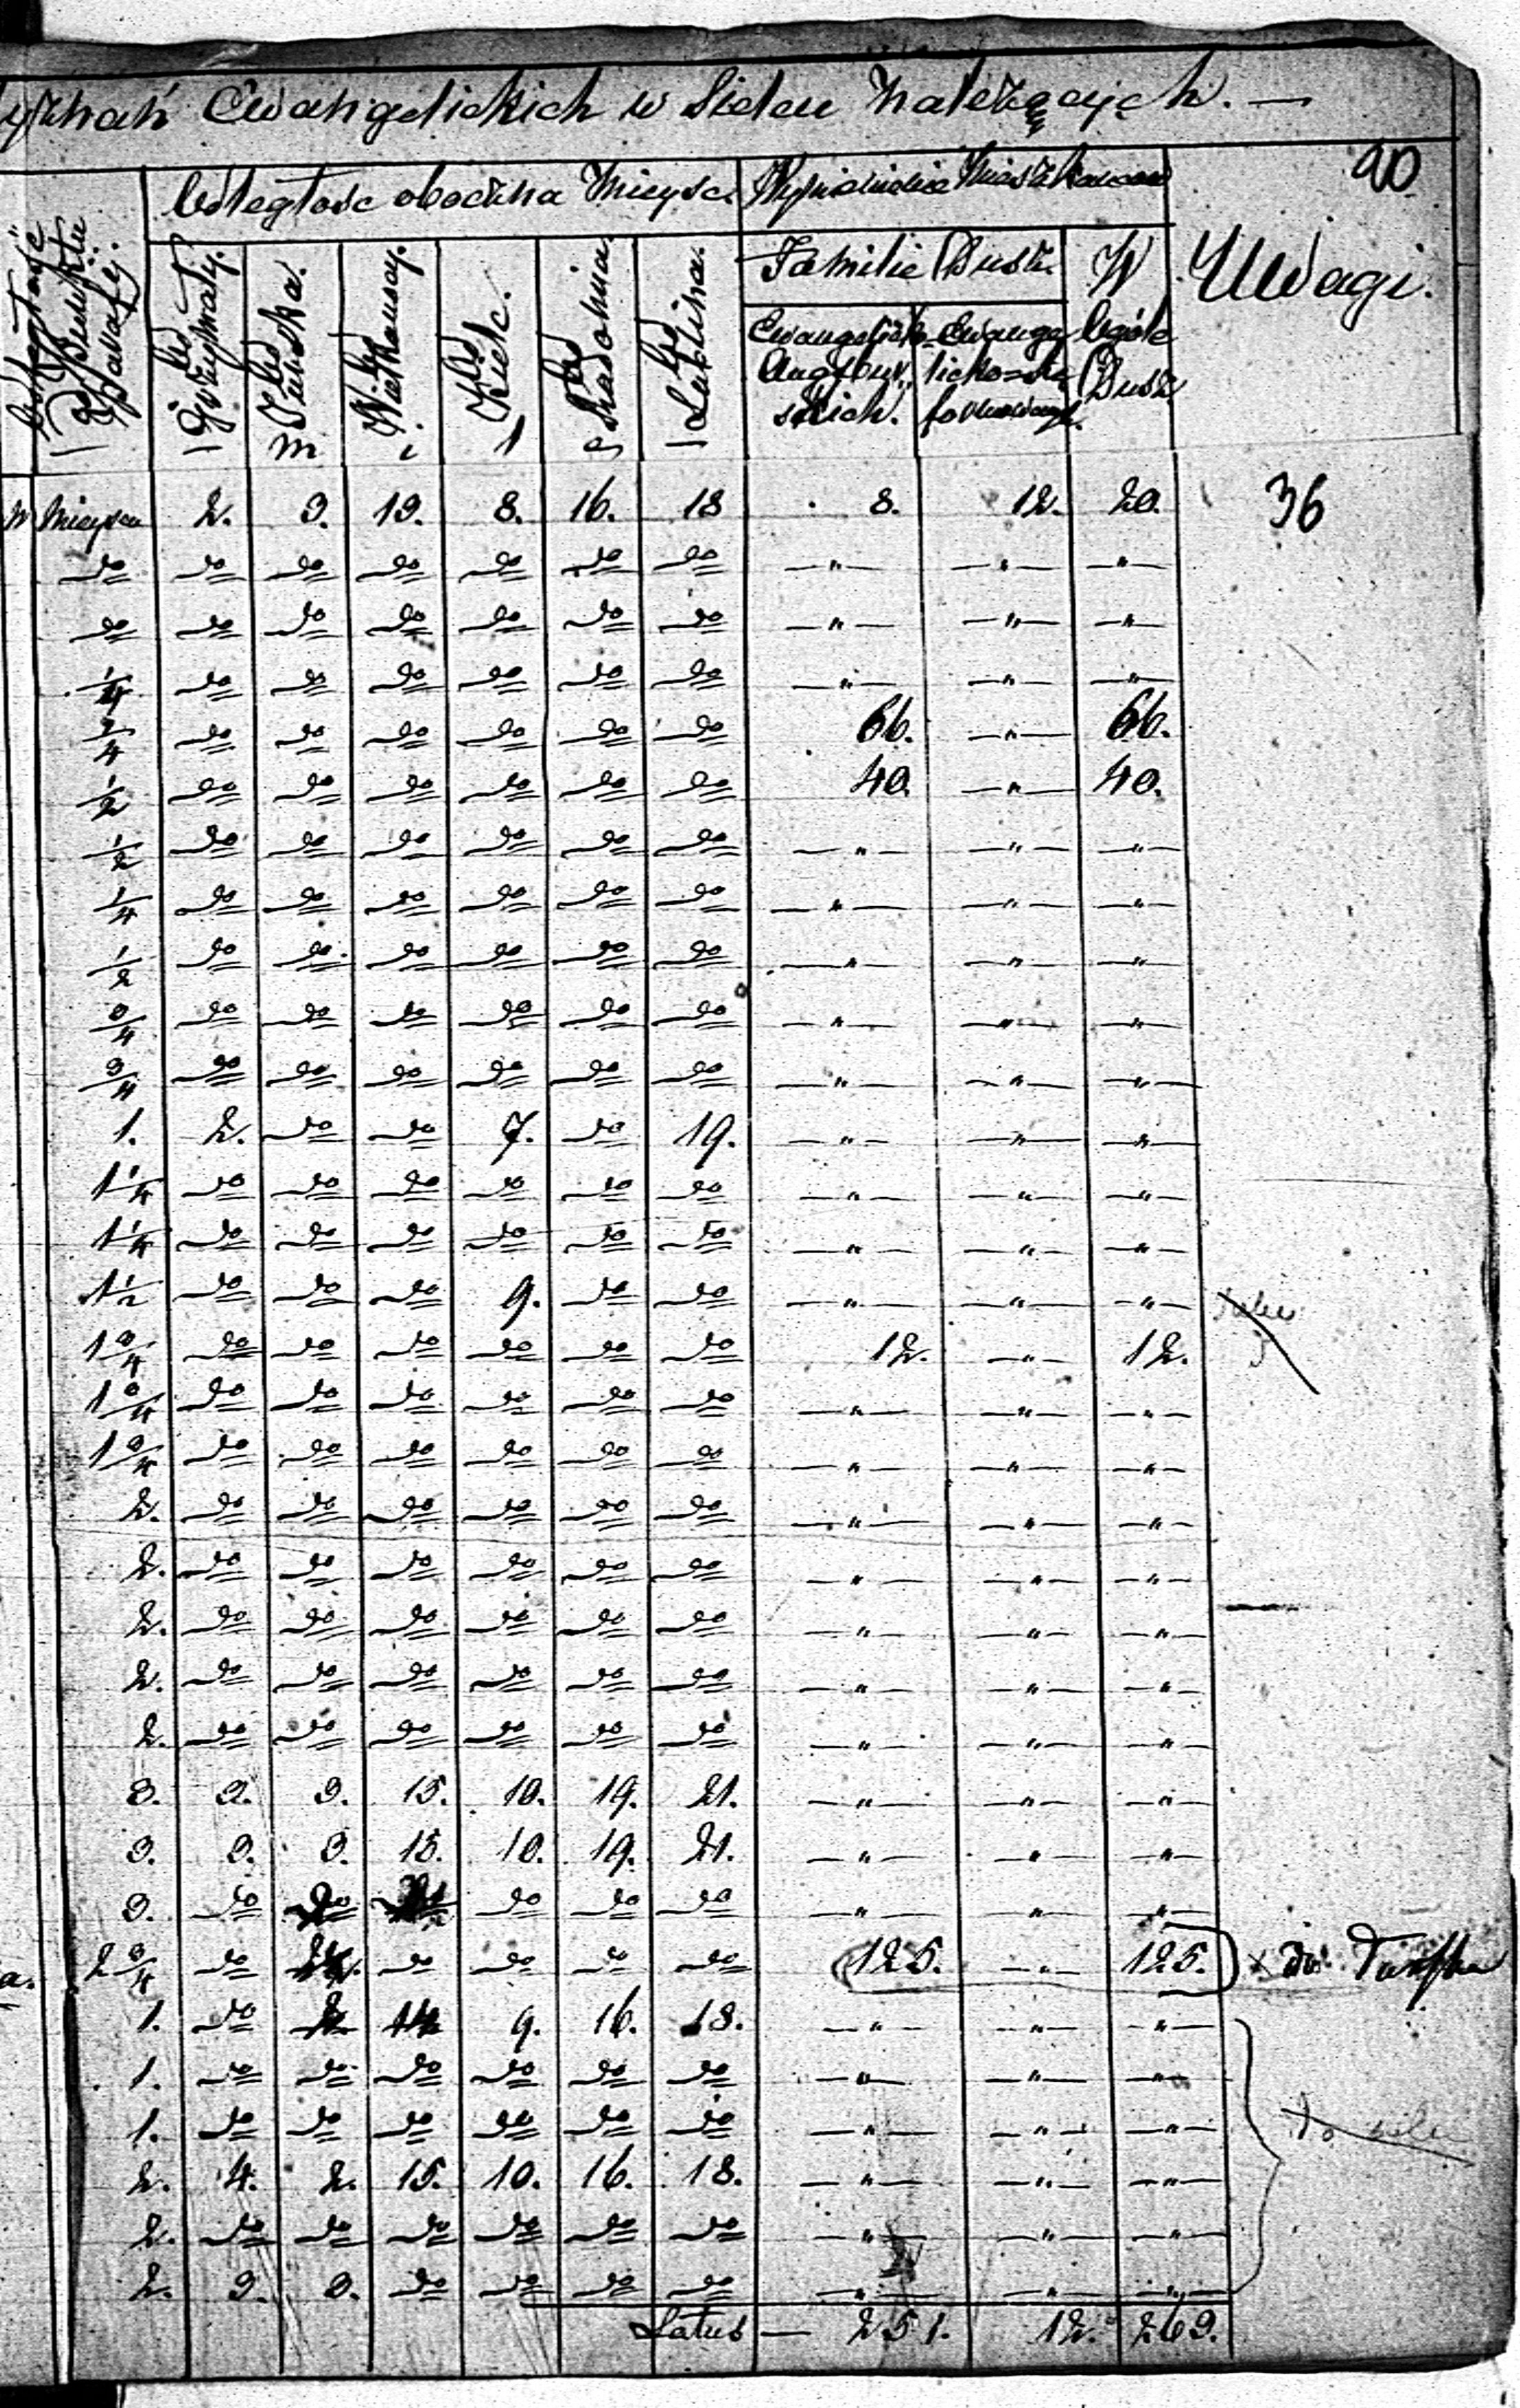 yznań Ewangelickich w Sielcu należących. —
90
Odległość oboczna Mieysc. Wyszczególnienie Mieszkańców
Uwagi.
Familie Dusz. W
Ewangelicko Augsburskich. Ewangelicko-reformowanych. Ogóle Dusz
Odległość Od Punktu Parafij. Od Pińska. Od Kielc. Od Radomia Od Lublina.
M i l
w Mieyscu 2. 3. 13. 8. 16. 18 8. 12. 20. 36
do do do do do do do — " — — " — — " —
do do do do do do do — " — — " — — " —
1/4 do do do do do do — " — — " — — " —
3/4 do do do do do do 66. — " — 66.
1/2 do do do do do do 40. — " — 40.
1/2 do do do do do do — " — — " — — " —
1/4 do do do do do do — " — — " — — " —
1/2 do do do do do do — " — — " — — " —
3/4 do do do do do do — " — — " — — " —
3/4 do do do do do do — " — — " — — " —
1. 2. do do 7. do 19. — " — — " — — " —
1 1/4 do do do do do do — " — — " — — " —
1 1/4 do do do do do do — " — — " — — " —
1 1/2 do do do 9. do do — " — — " — — " —
1 3/4 do do do do do do 12. — " — 12.
1 3/4 do do do do do do — " — — " — — " —
1 3/4 do do do do do do — " — — " — — " —
2. do do do do do do — " — — " — — " —
2. do do do do do do — " — — " — — " —
2. do do do do do do — " — — " — — " —
2. do do do do do do — " — — " — — " —
2. do do do do do do — " — — " — — " —
3. 3. 3. 15. 10. 19. 21. — " — — " — — " —
3. 3. 3. 15. 10. 19. 21. — " — — " — — " —
3. do do do do do — " — — " — — " —
a. 2 3/4 do do do do do 125. — " — 125. x do
1. do 2. 14 9. 16. 18. — " — — " — — " —
1. do do do do do do — " — — " — — " —
1. do do do do do do — " — — " — — " —
2. 4. 2. 15. 10. 16. 18. — " — — " — — " —
2. do do do do do do — " — — " — — " —
2. 3. 3. do do do do — " — — " — — " —
Latus — 251. 12. 263.